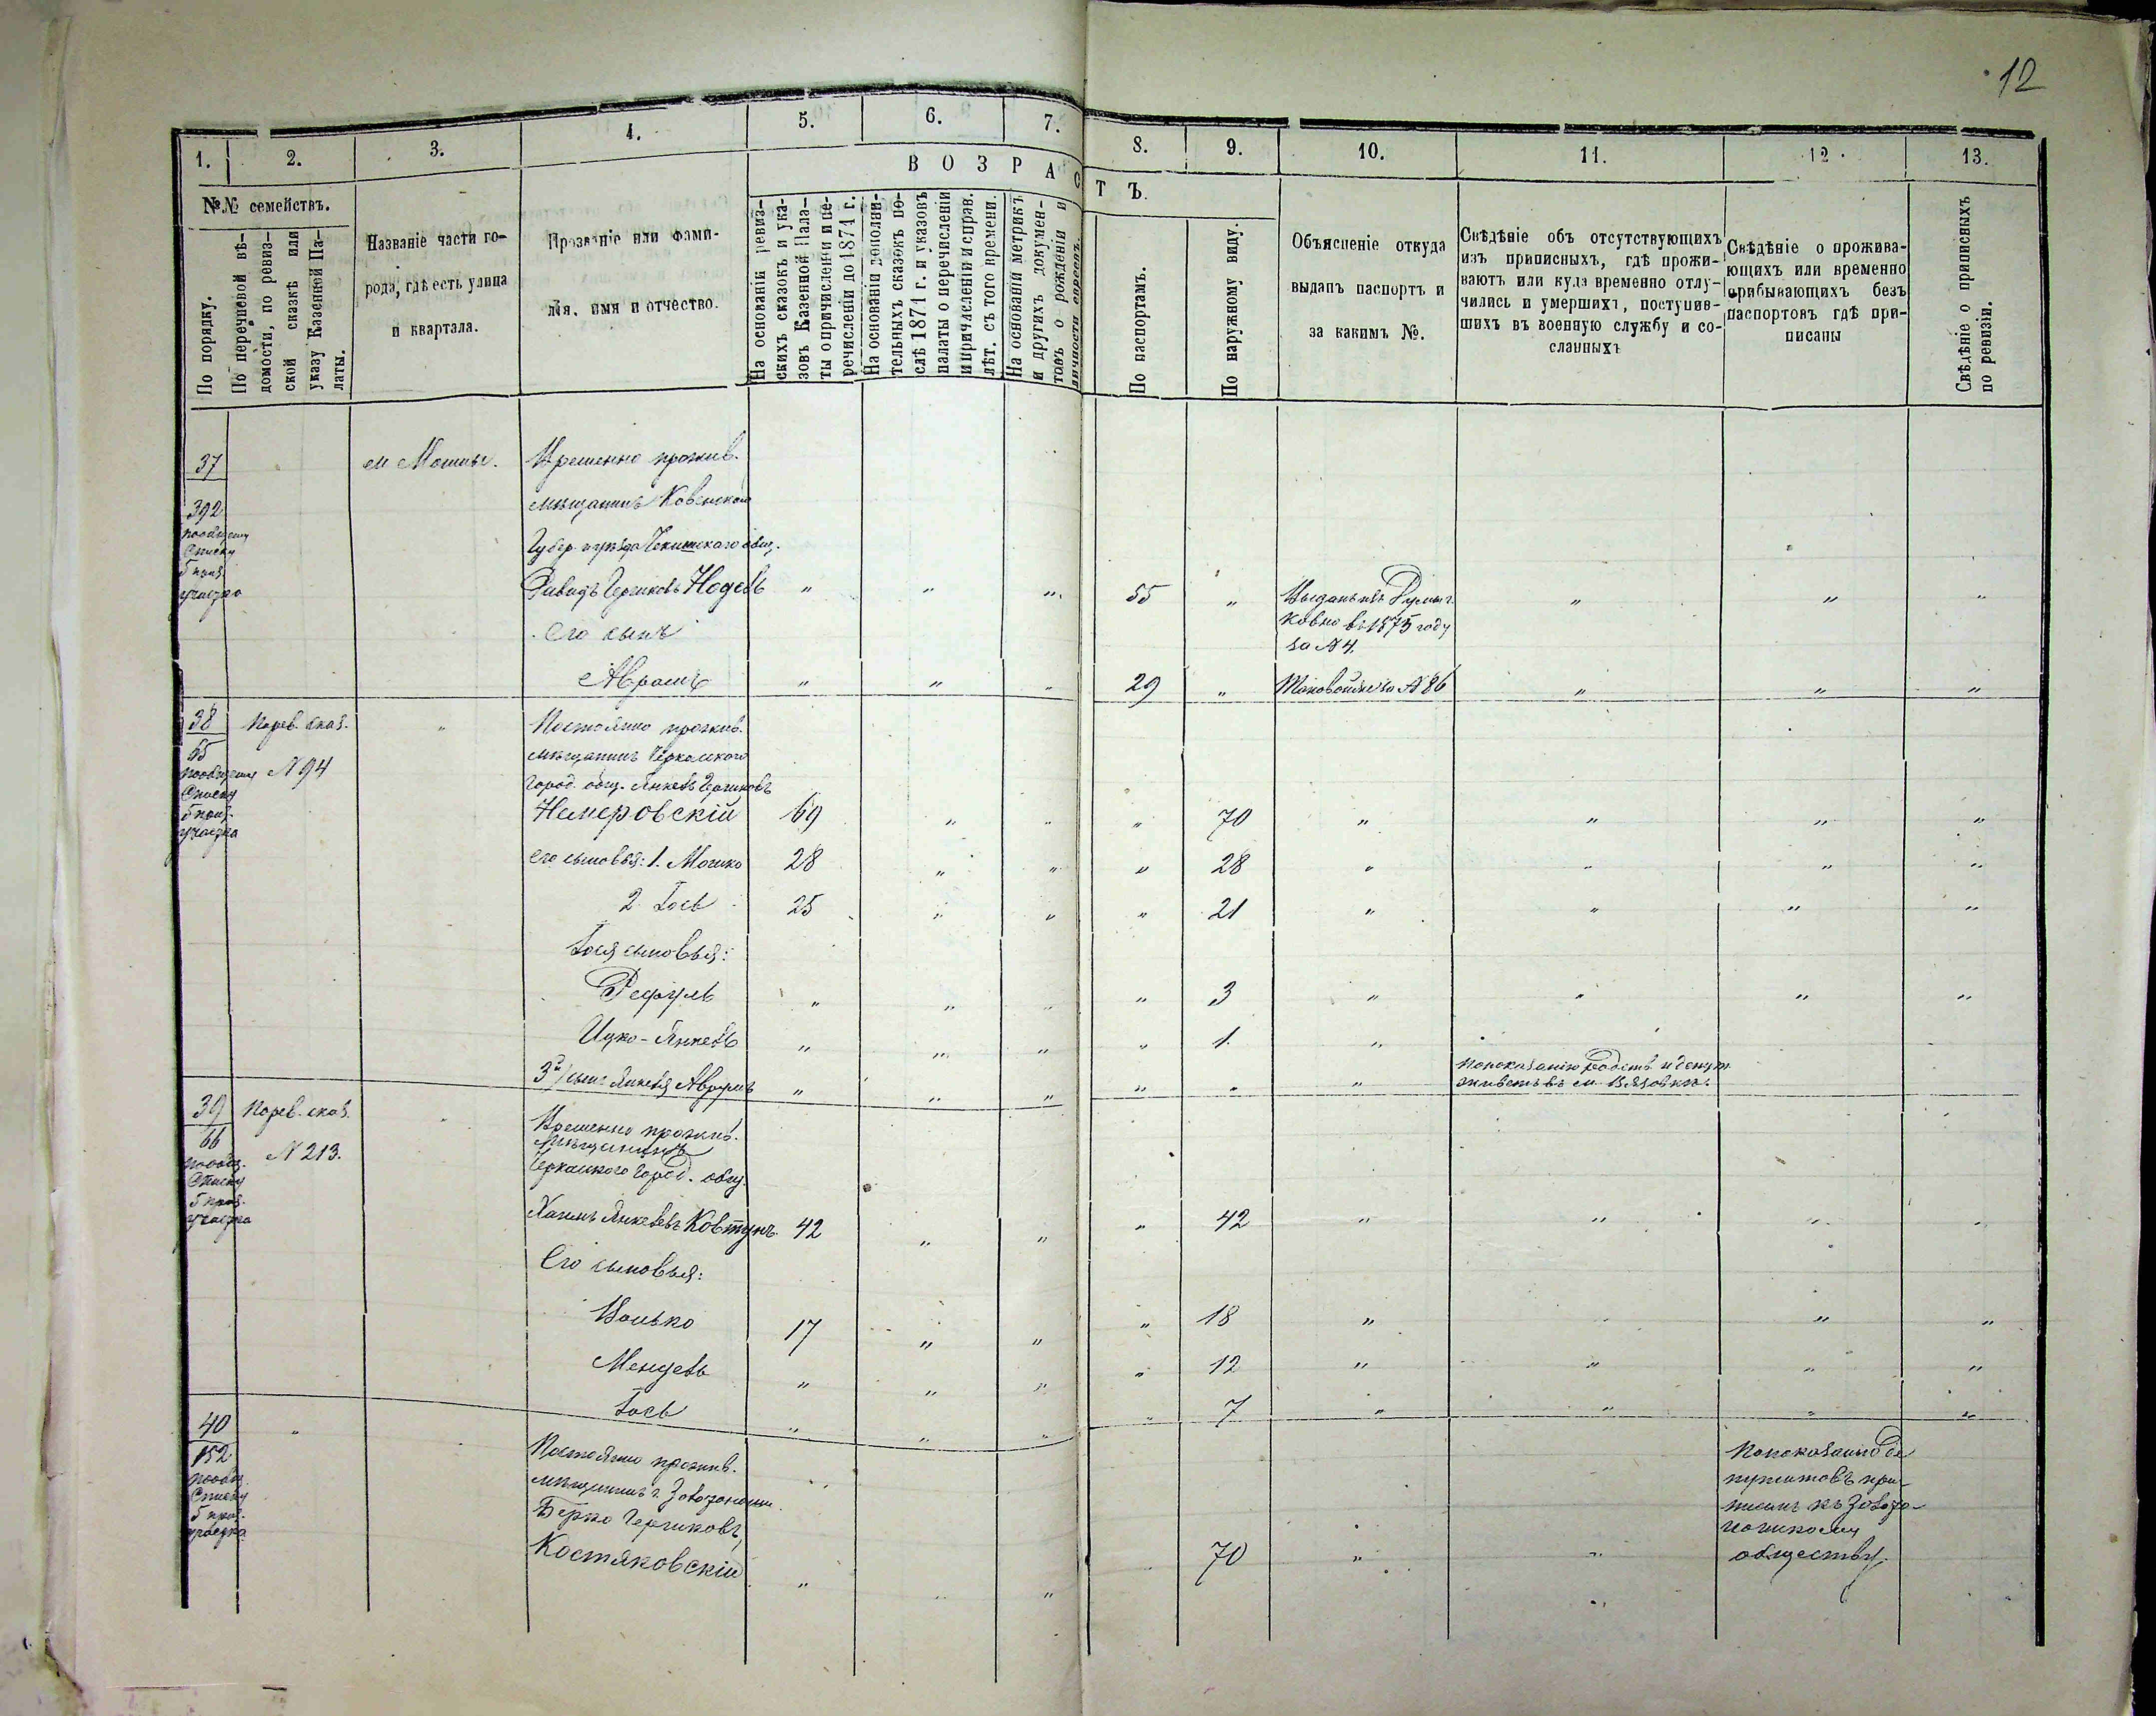 12
1. 2. 3. 4. 5. 6. 7. 8. 9. 10. 11. 12. 13.
ВОЗРАСТЪ.
№№ семействъ.
По порядку.
По перечневой вѣ-
домости, по ревиз-
ской сказкѣ или
указу Казенной Па-
латы.
Названіе части го-
рода, гдѣ есть улица
и квартала.
Прозваніе или фами-
лія, имя и отчество.
На основаніи ревиз-
скихъ сказокъ и ука-
зовъ Казенной Пала-
ты о причисленіи и пе-
речисленіи до 1871 г.
На основаніи дополни-
тельныхъ сказокъ по-
слѣ 1871 г. и указовъ
палаты о перечисленіи
и причисленіи и справ.
лѣт. съ того времени.
На основаніи метрикъ
и другихъ докумен-
товъ о рожденіи и
личности евреевъ.
По паспортамъ.
По наружному виду.
Объясненіе откуда
выданъ паспортъ и
за какимъ №.
Свѣдѣніе объ отсутствующихъ
изъ приписныхъ, гдѣ прожи-
ваютъ или куда временно отлу-
чились и умершихъ, поступив-
шихъ въ военную службу и со-
сланныхъ
Свѣдѣніе о прожива-
ющихъ или временно
прибывающихъ безъ
паспортовъ гдѣ при-
писаны
Свѣдѣніе о приписныхъ
по ревизіи.
37
392
по общему
Списку
5 приз.
участка
м Мошны.
Временно прожив.
мѣщанинъ Ковенской
Губер. и уѣзда Чекишскаго общ.
Давидъ Гершковъ Нодель " " " 55 " Выданъ изъ Думы г.
Ковно въ 1875 году
за № 4. " " "
Его сынъ
Аврамъ " " " 29 " Таковой же за № 86 " " "
38
65
по общему
Списку
5 приз.
участка
Порев. сказ.
№ 94
"
Постоянно прожив.
мѣщанинъ Черкасскаго
город. общ. Янкель Гершковъ
Немеровскій 69 " " " 70 " " " "
его сыновья: 1. Мошко 28 " " " 28 " " " "
2 Іось 25 " " " 21 " " " "
Іося сыновья:
Рефуль " " " " 3 " " " "
Ицко-Янкель " " " " 1. "
3й сынъ Янкеля Аврумъ " " " " " " По показанію родств. и депут.
живетъ въ м. Вязовкѣ.
39
66
по общ.
Списку
5 приз.
участка
Порев. сказ.
№ 213.
"
Временно прожив.
мѣщанинъ
Черкасскаго город. общ.
Хаимъ Янкелевъ Ковтунъ 42 " " " 42 " " " "
Его сыновья:
Волько 17 " " " 18 " " "
Мендель " " " " 12 " " " "
Іось " " " " 7 " " " "
40
152
по общ.
Списку
5 приз.
участка
"
Постоянно прожив.
мѣщанинъ г. Золотоноши
Берко Гершковъ
Костяковскій " " " 70 " "
По показанію де
путатовъ при-
писанъ къ Золото-
ношскому
обществу.